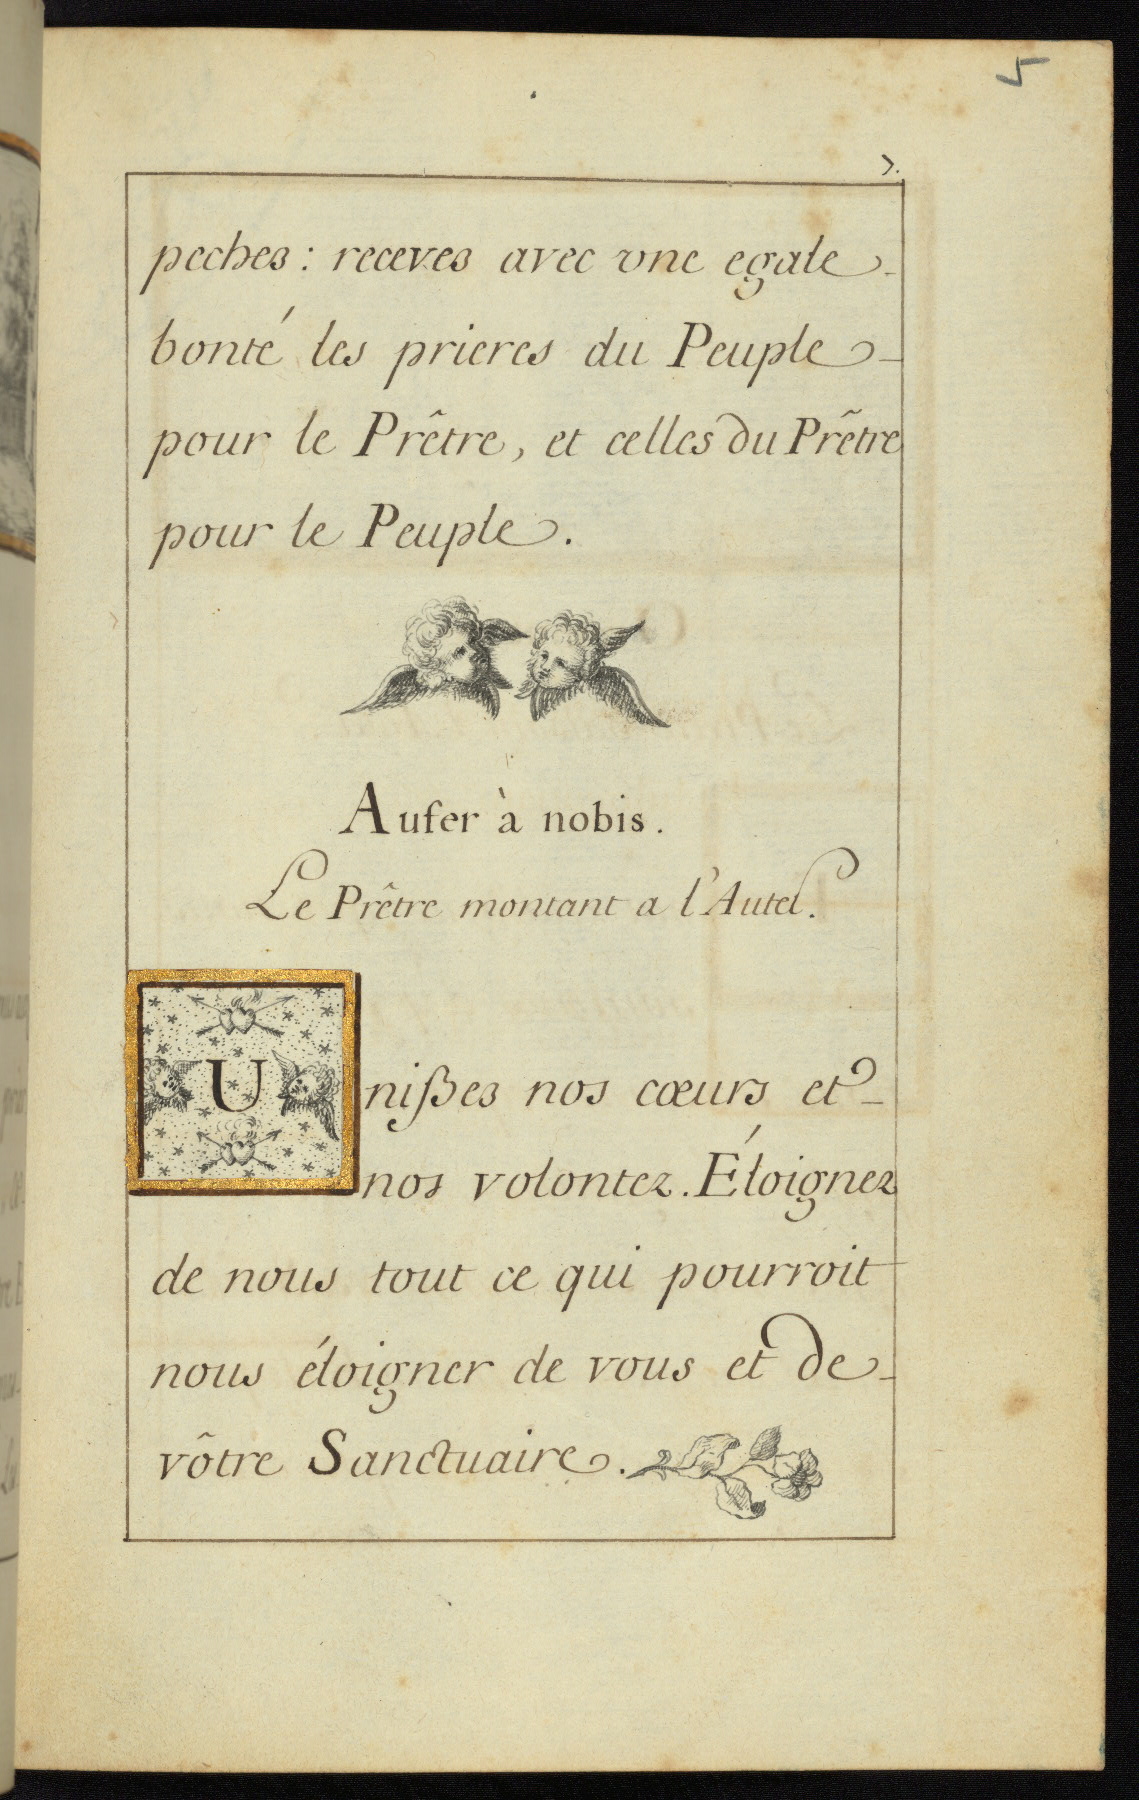 5
7.
peches : receves avec vne egale
bonté les prieres du Peuple
pour le Prêtre, et celles du Prêtre
pour le Peuple.
Aufer à nobis.
Le Prêtre montant a l'Autel.
Unißes nos cœurs et
nos volontez. Éloignez
de nous tout ce qui pourroit
nous éloigner de vous et de
vôtre Sanctuaire.